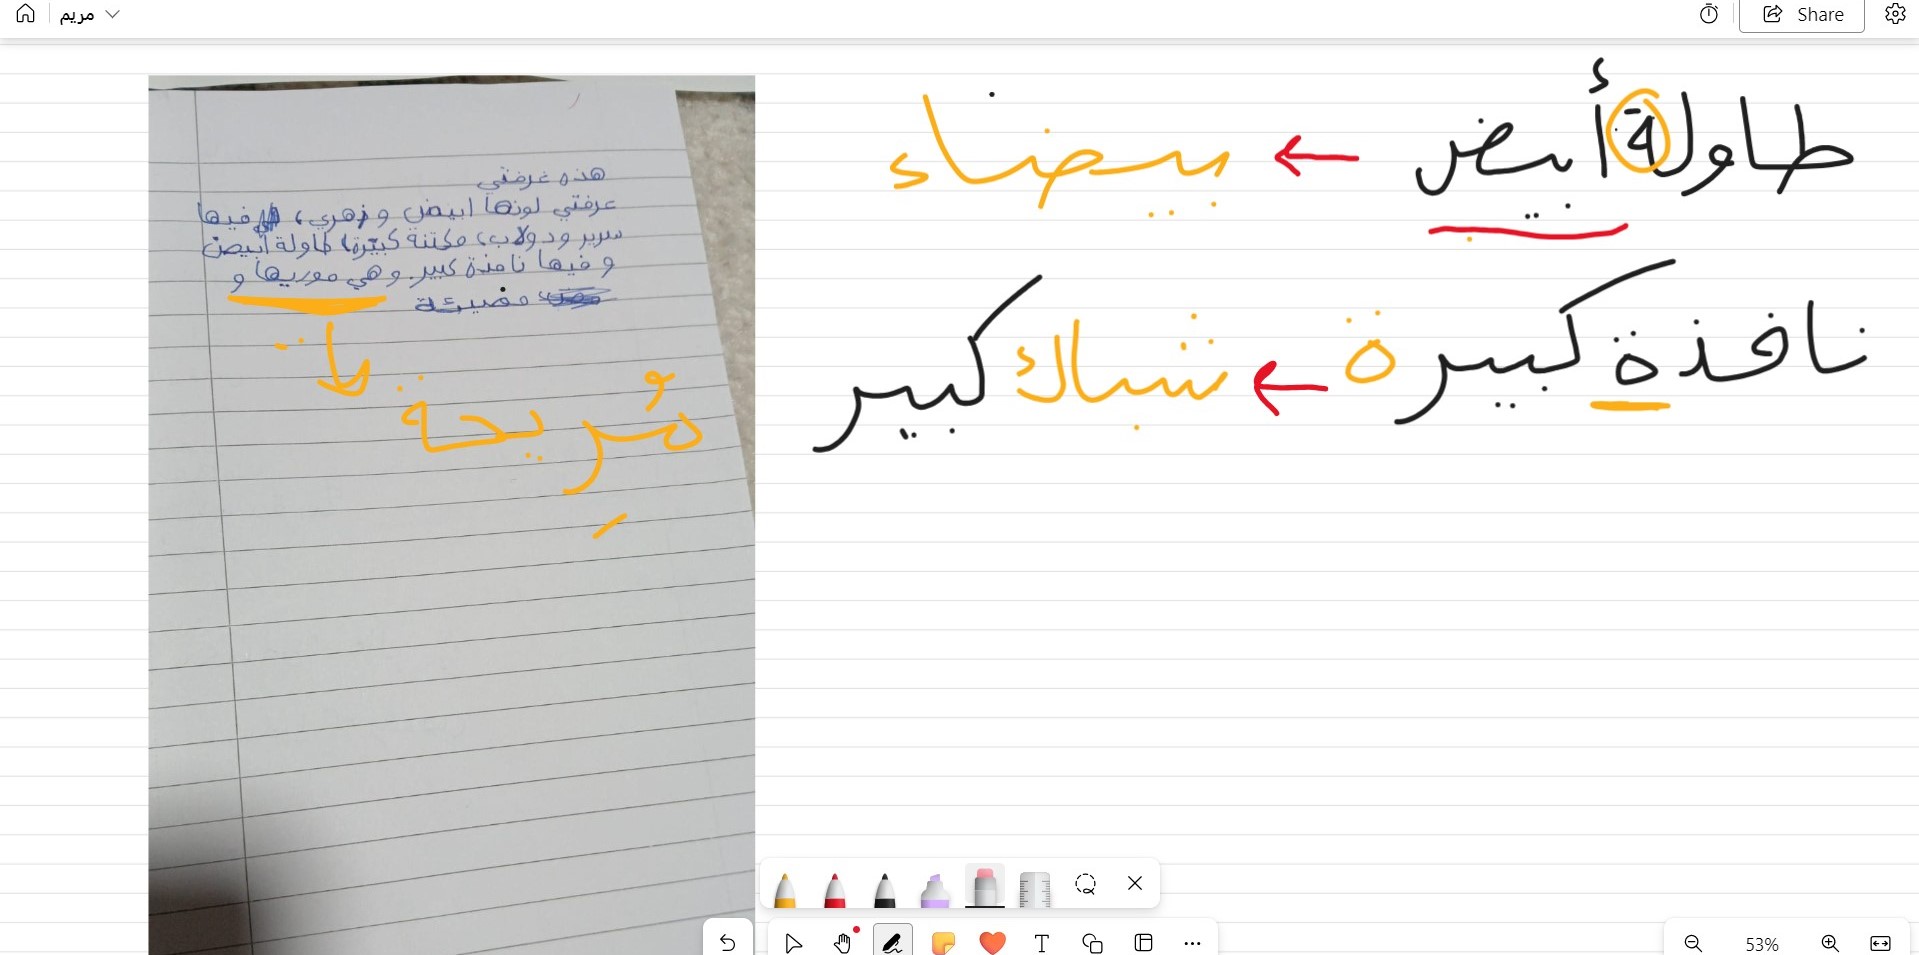 مريم
Share
هذه غرفتي
عرفتي لونها ابيض و زهري، فيها
سرير ودولاب، مكتنة كبيرة، طاولة أبيض
و فيها نافذة كبير. و هي موريها و
مضيئة
مُريحة
طاولة أبيض ← بيضاء
نافذة كبيرة ← شباك كبير
53%